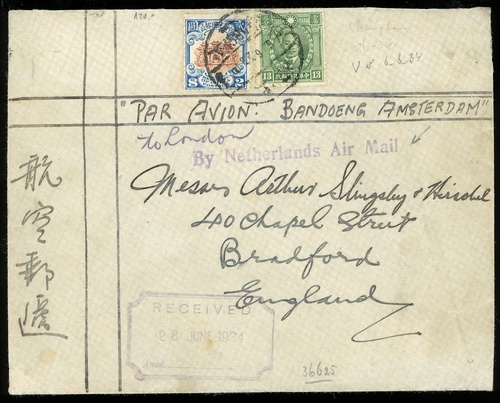 120.-
V 5 6.6.34
$2
13 13
"PAR AVION: BANDOENG AMSTERDAM"
to London
By Netherlands Air Mail
Messrs Arthur Slingsby & Herschel
40 Chapel Street
Bradford
England
航空郵遞
RECEIVED
28 JUNE 1934
36625